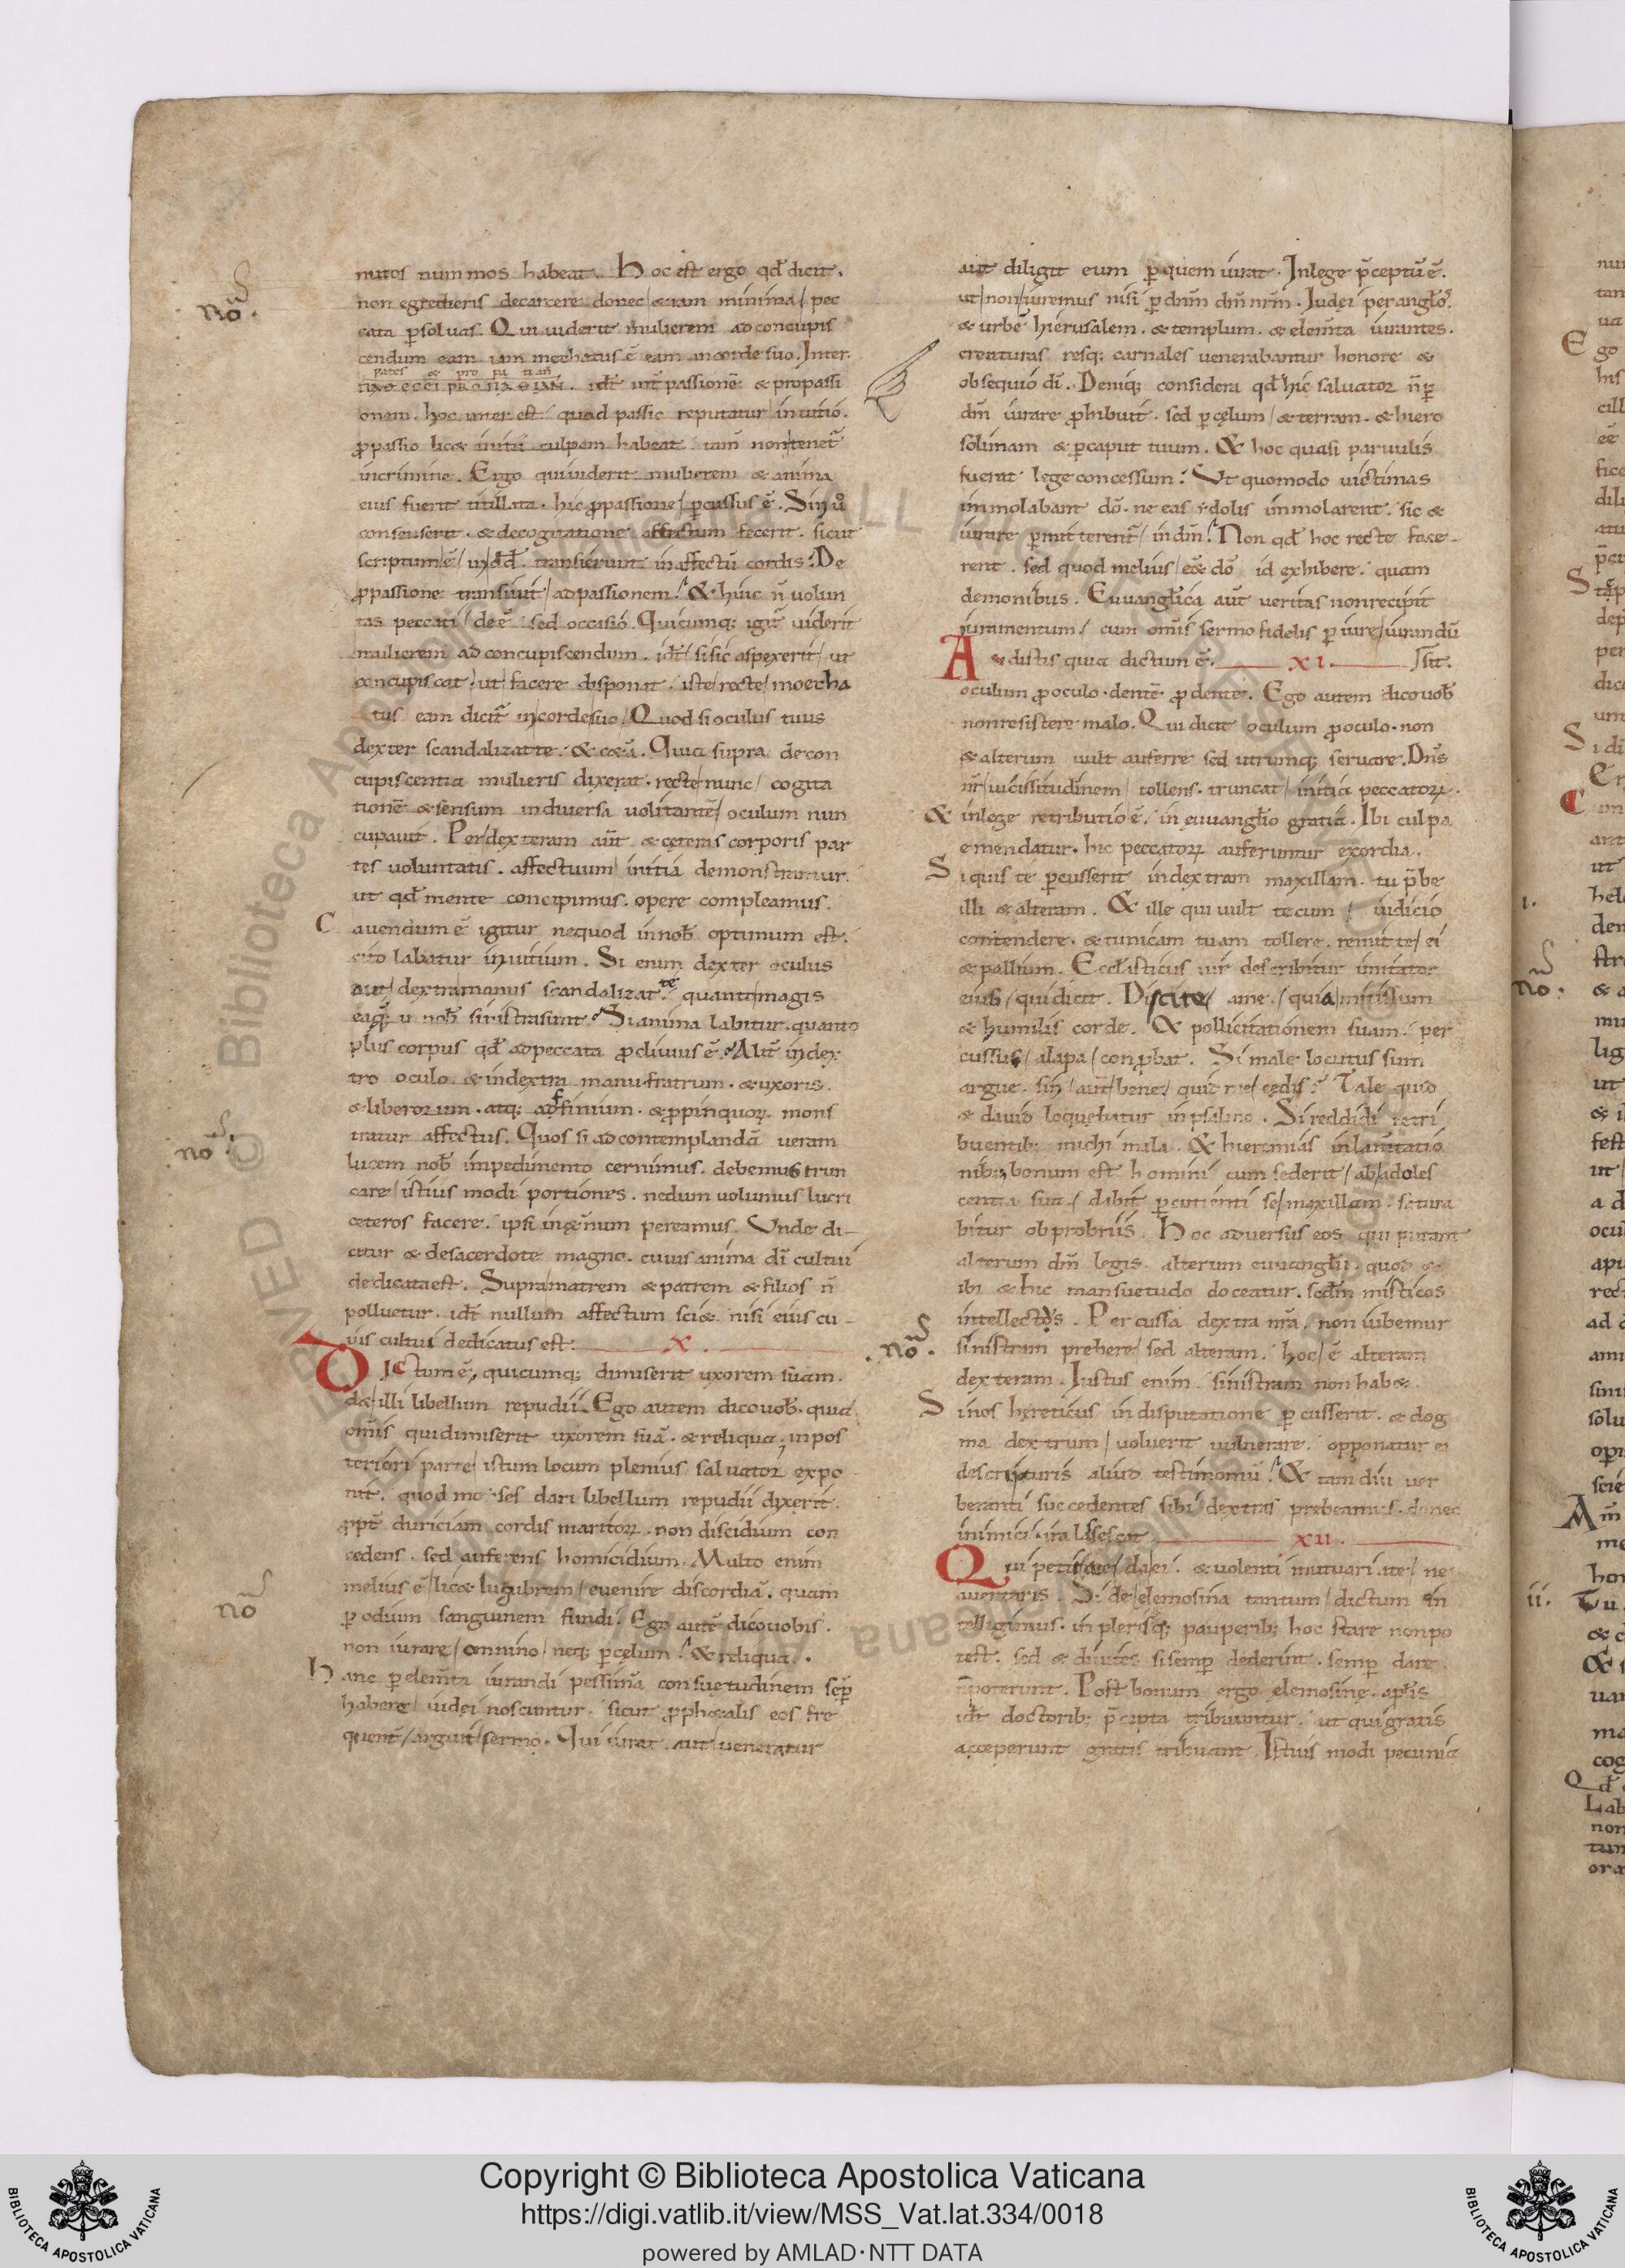 nutos nummos habeat. Hoc est ergo qđ dicit.
non egredieris decarcere donec etiam minima pec
cata p̱soluas. Qui uiderit mulierem ad concupis
cendum eam iam mechatus ē eam incorde suo. Inter
pates & pro pa tian
idē int̄ passionē & propassi
onem. hoc inter est quod passio reputatur inuitio.
ꝓpassio licet initii culpam habeat tam̄ non tenet̄
incrimine. Ergo qui uiderit mulierem & anima
eius fuerit titillata. hic ꝓpassione p̱cussus ē. Sin ů
consenserit. & decogitatione affectum fecerit. sicut
scriptum ē in dđ. transierunt in affectū cordis. De
ꝓpassione transiuit ad passionem. & huic n̄ uolun
tas peccati deē sed occasio. Quicumq; igit̄ uiderit
mulierem ad concupiscendum. idē si sic aspexerit ut
concupiscat. ut facere disponat. iste recte moecha
tus eam dicit̄ incorde suo. Quod si oculus tuus
dexter scandalizat te. & cet̄a. Quia supra decon
cupiscentia mulieris dixerat. recte nunc cogita
tionē & sensum indiuersa uolitantē oculum nun
cupauit. Per dexteram aut̄ & ceteras corporis par
tes uoluntatis. affectuum initia demonstrantur.
ut qđ mente concipimus. opere compleamus.
Cauendum ē igitur nequod in nob̄ optimum est.
cito labatur inuitium. Si enim dexter oculus
aut dextra manus scandalizat te. quanto magis
eaq; in nob̄ sinistra sunt. Si anima labitur. quanto
plus corpus qđ ad peccata ꝓcliuius ē. Alit̄ in dex
tro oculo & in dextra manu fratrum. & uxoris.
& liberorum. atq; adfinium. & ꝓpinquoꝝ. mons
tratur affectus. Quos si ad contemplandā ueram
lucem nob̄ impedimento cernimus. debemus trun
care istius modi portiones. nedum uolumus lucri
ceteros facere. ipsi in æt̄num pereamus. Vnde di-
citur & desacerdote magno. cuius anima dī cultui
dedicata est. Supra matrem & patrem & filios n̄
polluetur. idē nullum affectum sciet. nisi eius cu-
ius cultui dedicatus est. X.
Dictum ē, quicumq; dimiserit uxorem suam.
det illi libellum repudii. Ego autem dico uob̄. quia
om̄is qui dimiserit uxorem suā. & reliqua. in pos
teriori parte istum locum plenius saluator expo
nit. quod moises dari libellum repudii dixerit.
ꝓpt̄ duriciam cordis maritoꝝ. non discidium con
cedens. sed auferens homicidium. Multo enim
melius ē licet lugubrem euenire discordiā. quam
p̱ odium sanguinem fundi. Ego autē dico uobis.
non iurare omnino neq; p̱ cęlum. & reliqua.
Hanc p̱ elem̄ta iurandi pessimā consuetudinem sep̱
habere iudei noscuntur. sicut ꝓphetalis eos fre
quent̄ arguit sermo. Qui iurat. aut ueneratur
aut diligit eum p̱ quem iurat. In lege p̄ceptū ē.
ut non iuremus nisi p̱ dnm̄ dm̄ nrm̄. Iudei per angl̄os
& urbē hierusalem. & templum. & elem̄ta iurantes.
creaturas resq; carnales uenerabantur honore &
obsequio dī. Deniq; considera qđ hic saluator n̄ p̱
dm̄ iurare ꝓhibuit. sed p̱ cęlum & terram. & hiero
solimam & p̱ caput tuum. & hoc quasi paruulis
fuerat lege concessum. Vt quomodo uictimas
immolabant dō. ne eas idolis immolarent. sic &
iurare p̱mitterent̄ in dm̄. Non qđ hoc recte face-
rent. sed quod melius eēt dō id exhibere. quam
demonibus. Euuangl̄ica aut̄ ueritas non recipit
iuramentum. cum om̄is sermo fidelis p̱ iure iurandū
Audistis quia dictum ē. XI. sit.
oculum ꝓ oculo. dentē ꝓ dente. Ego autem dico uob̄
non resistere malo. Qui dicit oculum ꝓ oculo. non
& alterum uult auferre sed utrumq; seruare. Dn̄s
nr̄ uicissitudinem tollens. truncat initia peccatoꝝ.
& in lege retributio ē. in euuangl̄io gratia. Ibi culpa
emendatur. hic peccatoꝝ auferuntur exordia.
Si quis te p̱cusserit in dextram maxillam. tu p̄be
illi & alteram. & ille qui uult tecum iudicio
contendere. & tunicam tuam tollere. remitte ei
& pallium. Eccl̄isticus uir describitur imitator
eius qui dicit. Discite a me. quia mitis sum
& humilis corde. & pollicitationem suam. per
cussus alapa conꝓbat. Si male locutus sum
argue. sin aut̄ bene quid me cędis? Tale quid
& dauid loquebatur in psalmo. Si reddidi retri
buentib; michi mala. & hieremias in lam̄tatio
nib; bonum est homini cum sederit ab adoles
centia sua. dabit p̱cutienti se maxillam. satura
bitur obprobriis. Hoc aduersus eos qui putant
alterum dm̄ legis. alterum euuangl̄ii. quod &
ibi & hic mansuetudo doceatur. scdm̄ misticos
intellectus. Percussa dextra nr̄a. non iubemur
sinistram prebere sed alteram. hoc ē alteram
dexteram. Iustus enim sinistram non habet.
Si nos hereticus in disputatione p̱cusserit. & dog
ma dextrum uoluerit uulnerare. opponatur ei
descripturis aliud testimoniū. & tam diu uer
beranti succedentes sibi dextras prebeamus. donec
inimici ira lassescat XII.
Qui petit a te da ei. & uolenti mutuari a te ne
auertaris. Si de elemosina tantum dictum in
telligimus. in plerisq; pauperib; hoc stare non po
test. sed & diuites si semp̱ dederint. semper dare
n̄ poterunt. Post bonum ergo elemosinę. apl̄is
idē doctorib; p̄cepta tribuuntur. ut qui gratis
acceperunt gratis tribuant. Istius modi pecunia
Copyright © Biblioteca Apostolica Vaticana
https://digi.vatlib.it/view/MSS_Vat.lat.334/0018
powered by AMLAD·NTT DATA
BIBLIOTECA APOSTOLICA VATICANA
BIBLIOTECA APOSTOLICA VATICANA